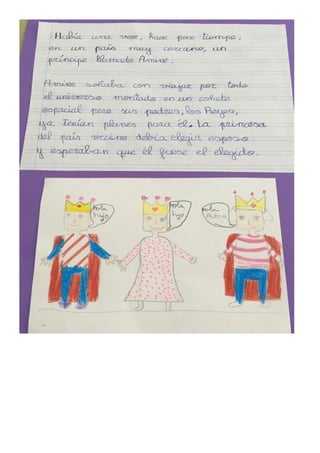 Había una vez, hace poco tiempo,
en un país muy cercano, un
príncipe llamado Amire.
Amire soñaba con viajar por todo
el universo montado en un cohete
espacial pero sus padres, los Reyes,
ya tenían planes para él. La princesa
del país vecino debía elegir esposo
y esperaban que él fuese el elegido.
hola
hijo
hola
hijo
hola